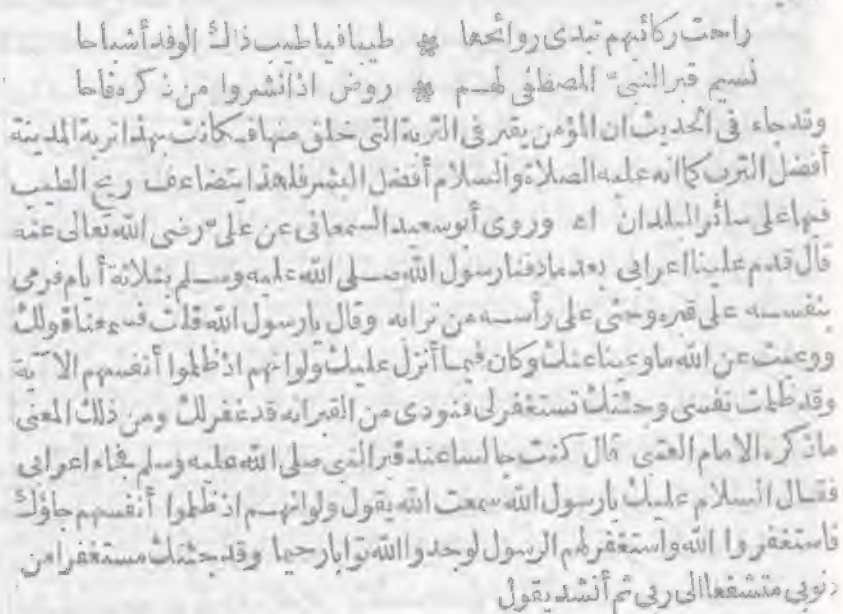 راحت ركائبهم تبدى روائحها * طيبا فياطيب ذاك الوفد أشباحا
نسيم قبر النبى المصطفى لهم * روض اذا نشروا من ذكره فاحا
وقد جاء فى الحديث ان المؤمن يقبر فى التربة التى خلق منها فكانت بهذا تربة المدينة
أفضل الترب كما انه عليه الصلاة والسلام أفضل البشر فلهذا يتضاعف ريح الطيب
فيها على سائر البلدان اه وروى أبو سعيد السمعانى عن على رضى الله تعالى عنه
قال قدم علينا اعرابى بعد مادفنا رسول الله صلى الله عليه وسلم بثلاثة أيام فرمى
بنفسه على قبره وحثى على رأسه من ترابه وقال يارسول الله قلت فسمعنا قولك
ووعيت عن الله ماوعينا عنك وكان فيما أنزل عليك ولوانهم اذ ظلموا أنفسهم الآية
وقد ظلمت نفسى وجئتك تستغفر لى فنودى من القبر انه قد غفر لك ومن ذلك المعنى
ماذكره الامام العتبى قال كنت جالسا عند قبر النبى صلى الله عليه وسلم فجاء اعرابى
فقال السلام عليك يارسول الله سمعت الله يقول ولوانهم اذ ظلموا أنفسهم جاؤك
فاستغفروا الله واستغفر لهم الرسول لوجدوا الله توابا رحيما وقد جئتك مستغفرا من
ذنوبى متشفعا الى ربى ثم أنشد يقول